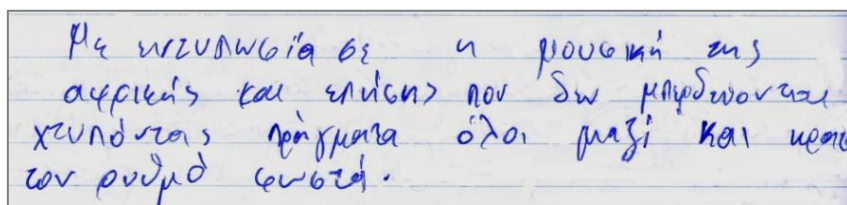 Με εντυπωσίασε η μουσική της
αφρικής και επίσης που δεν μπερδεύονται
χτυπόντας πράγματα όλοι μαζί και
τον ρυθμό σωστά.